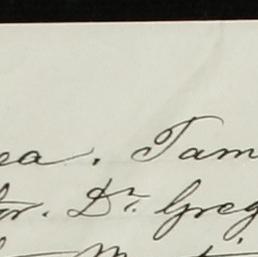 ea. Tam
or. Dr. Greg